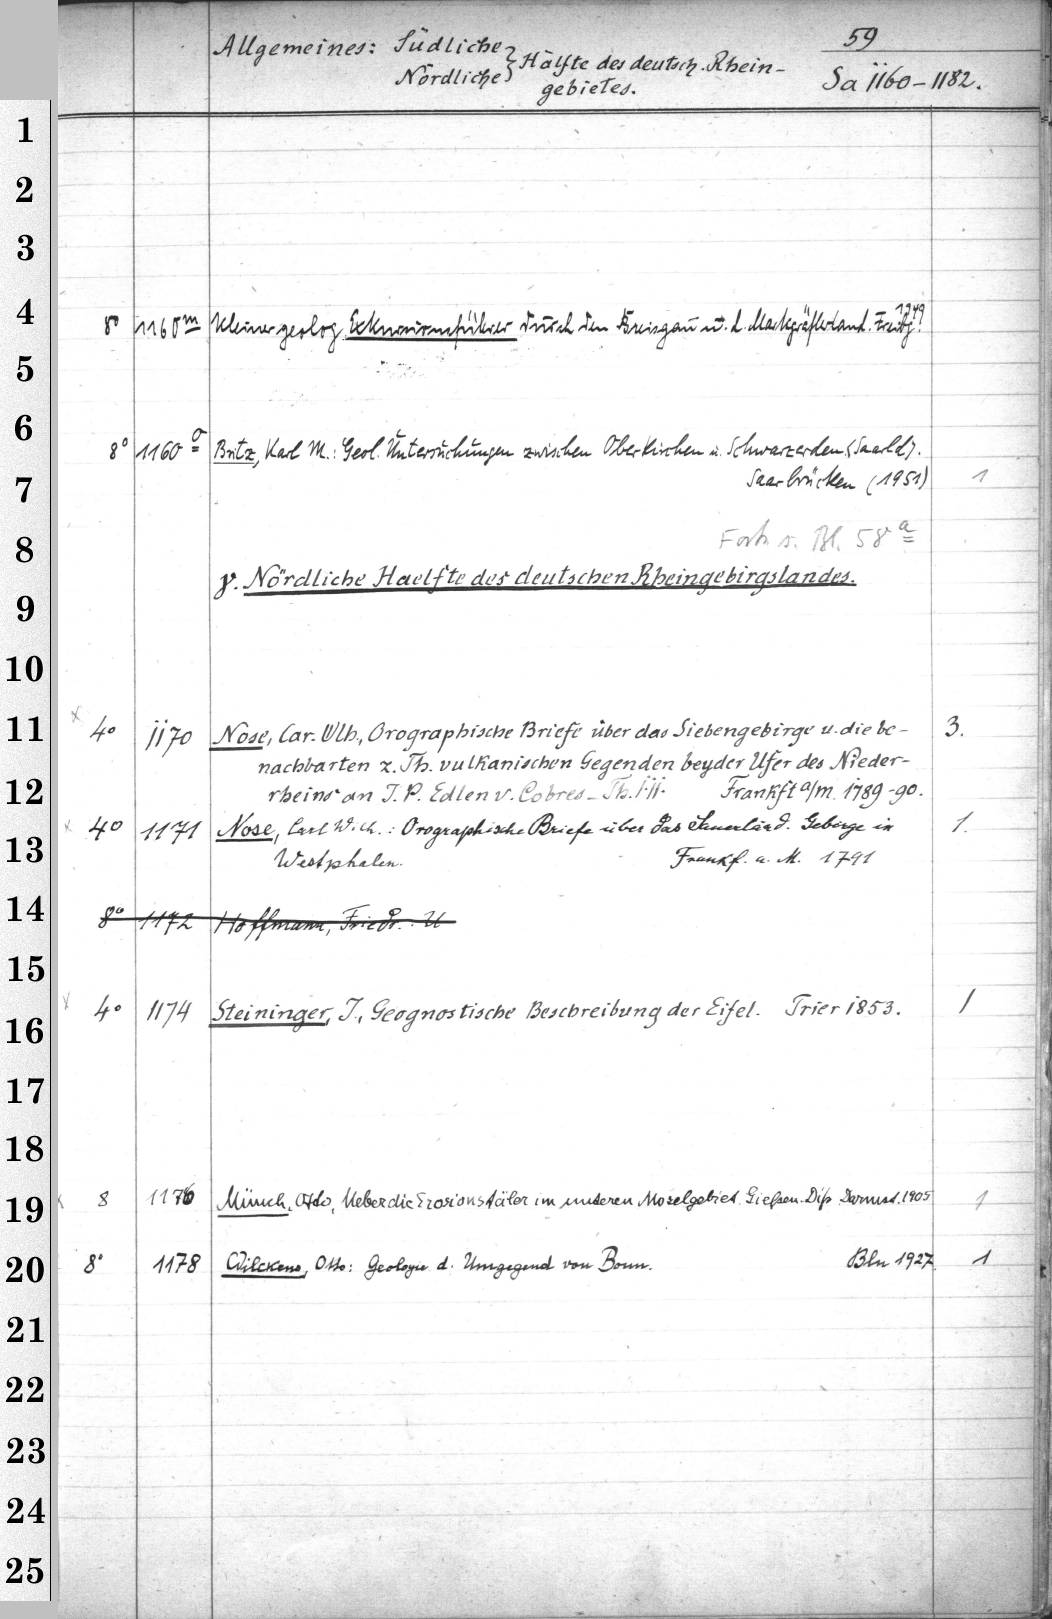 59
Allgemeines: Südliche
Nördliche } Hälfte des deutsch. Rhein-
gebietes.
Sa 1160-1182.
1
2
3
4
8° 1160m Kleiner geolog. Exkursionsführer durch den Breisgau u. d. Markgräflerland. Freibg. 1949
5
6
8° 1160o Britz, Karl M.: Geol. Untersuchungen zwischen Oberkirchen u. Schwarzerden (Saarld).
7
Saarbrücken (1951) 1
8
Forts. s. Bl. 58a
γ. Nördliche Haelfte des deutschen Rheingebirgslandes.
9
10
11
x 4° 1170 Nose, Car. Wlh., Orographische Briefe über das Siebengebirge u. die be- 3.
nachbarten z. Th. vulkanischen Gegenden beyder Ufer des Nieder-
12
rheins an J. P. Edlen v. Cobres_ Th. I.II. Frankft a/m. 1789-90.
x 4° 1171 Nose, Carl Wilh.: Orographische Briefe über das Sauerländ. Gebirge in 1.
13
Westphalen. Frankf. a. M. 1791
14
8° 1172 Hoffmann, Friedr.: U
15
x 4° 1174 Steininger, J., Geognostische Beschreibung der Eifel. Trier 1853. 1
16
17
18
19
x 8 1176 Münch, Otto, Ueber die Erosionstäler im unteren Moselgebiet. Gießen. Diß. Darmst. 1905 1
20
8° 1178 Wilckens, Otto: Geologie d. Umgegend von Bonn. Bln 1927. 1
21
22
23
24
25